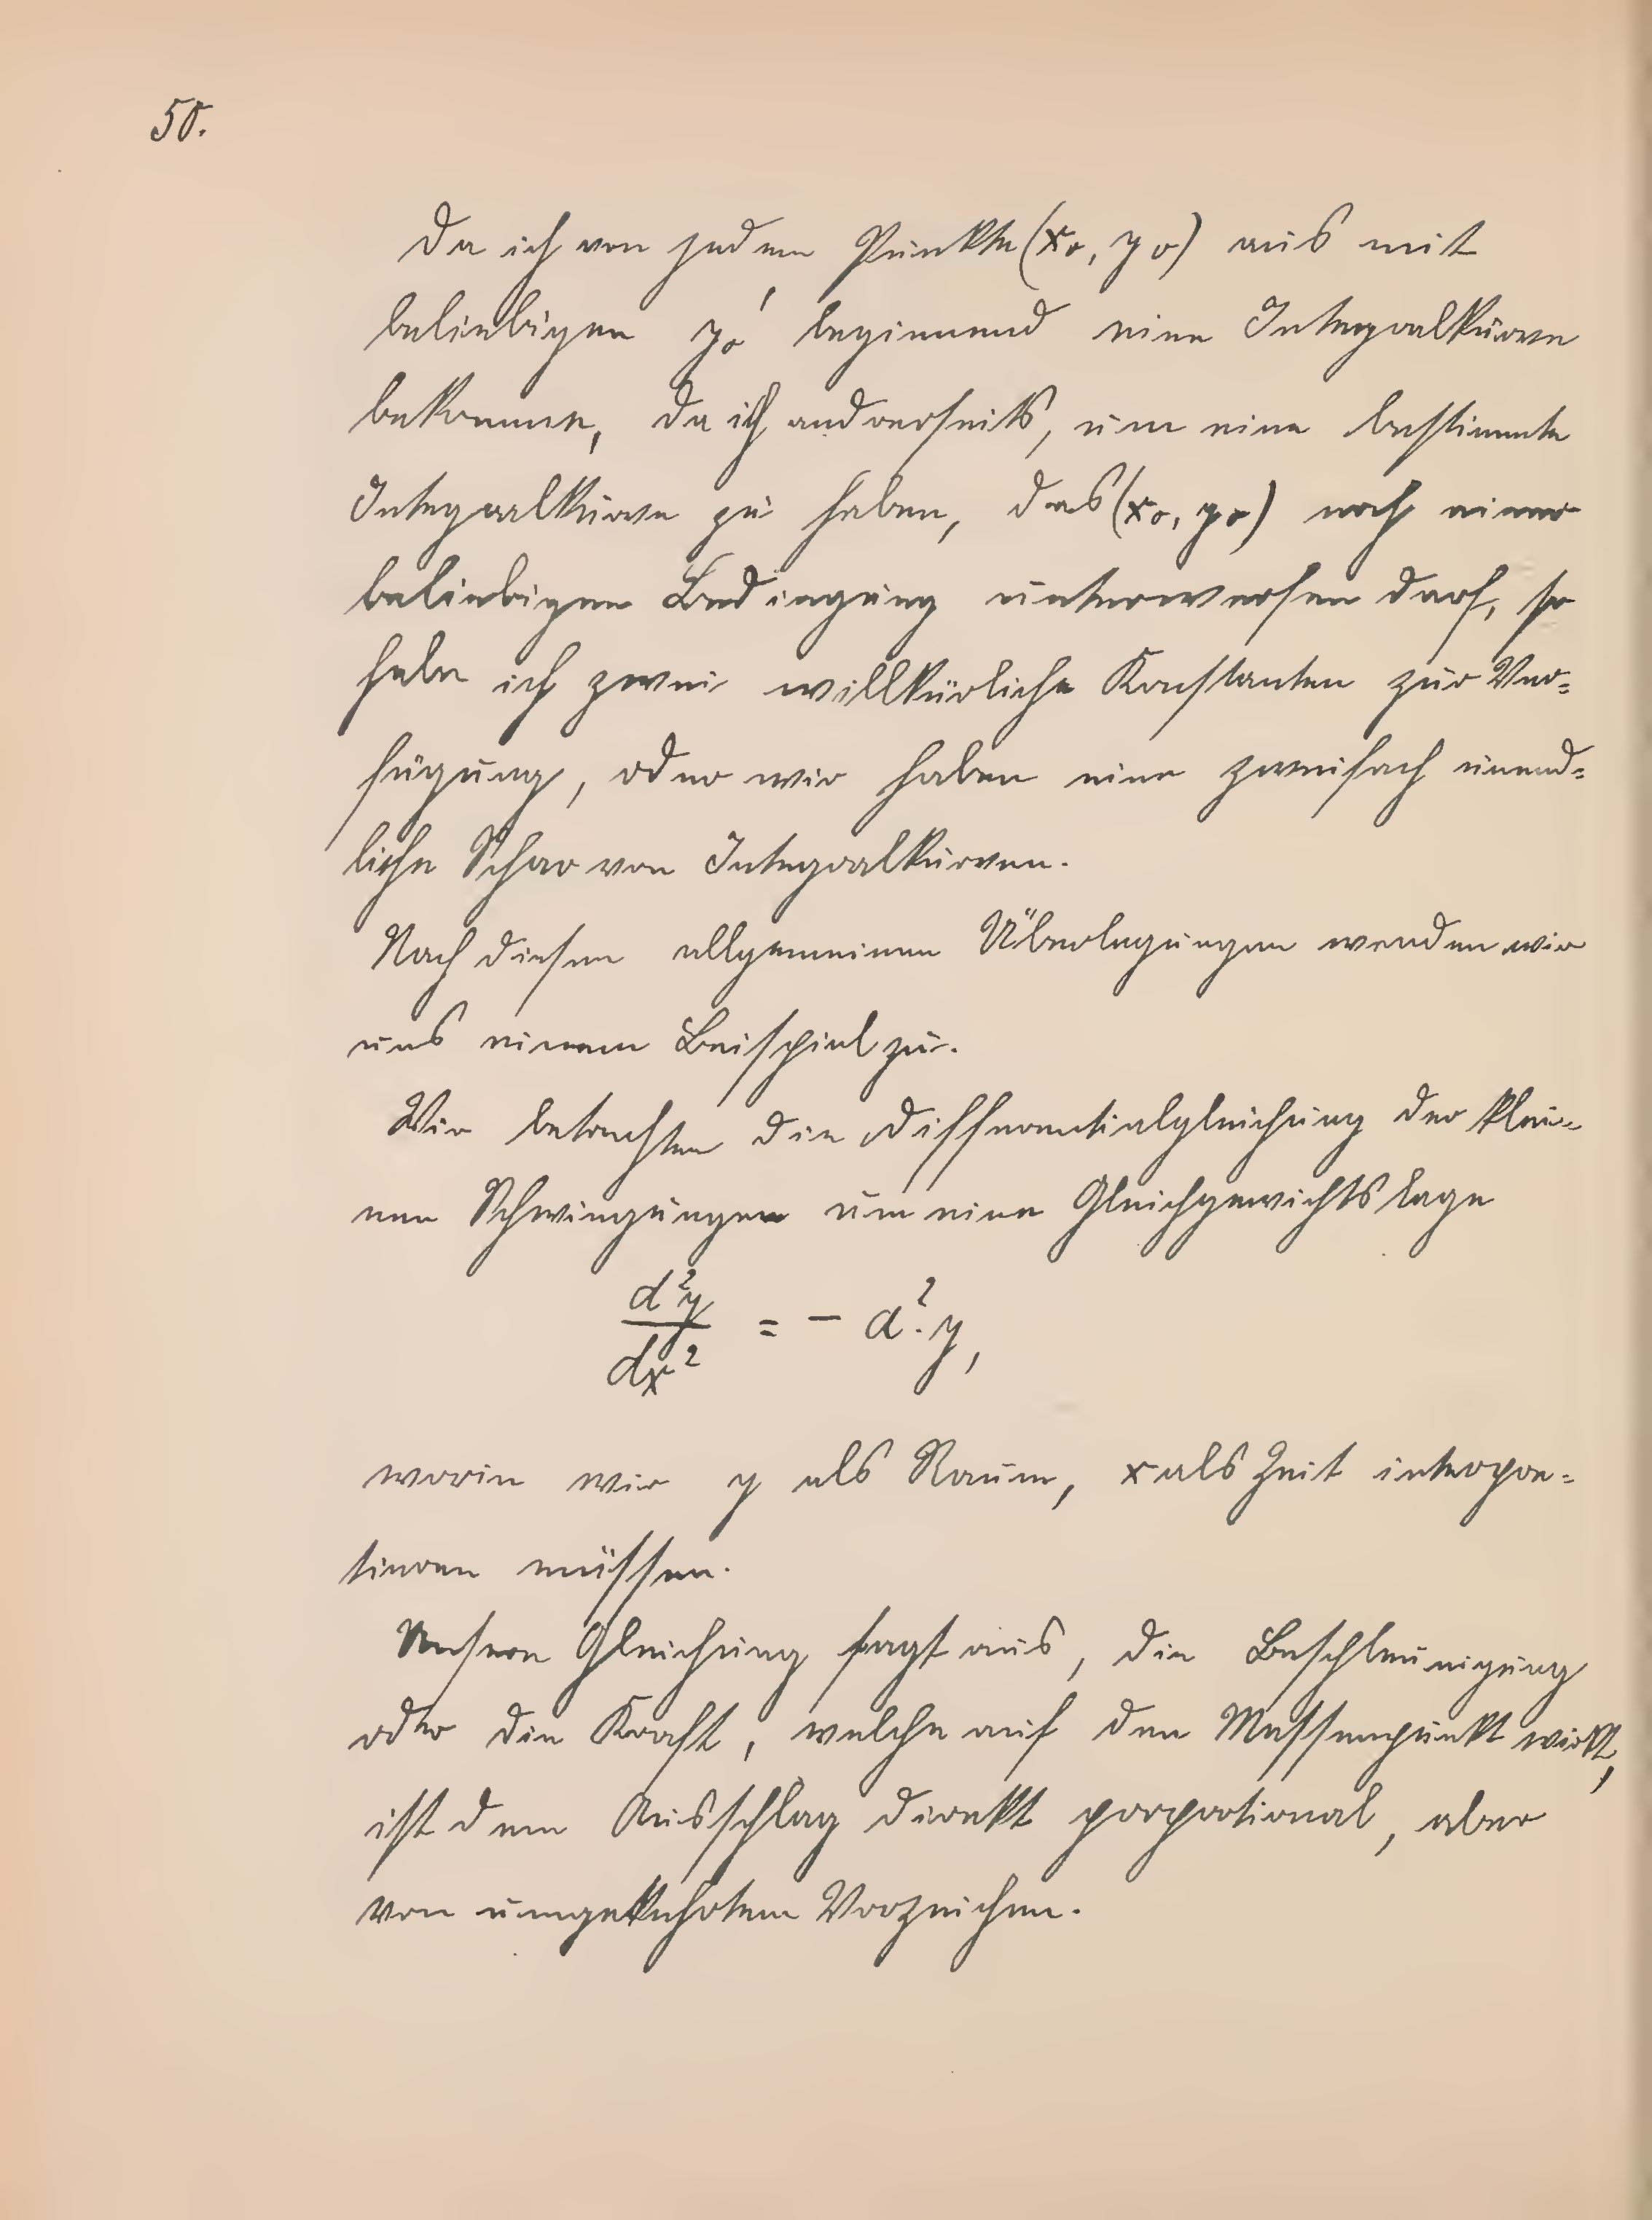 50.
Da ich von jedem Punkte (x₀, y₀) aus mit
beliebigen y₀' beginnend eine Integralkurve
bekomme, da ich anderseits, um eine bestimmte
Integralkurve zu haben, das (x₀, y₀) noch einer
beliebigen Bedingung unterwerfen darf, so
habe ich zwei willkürliche Konstanten zur Ver=
fügung, oder wir haben eine zweifach unend=
liche Schar von Integralkurven.
Nach diesen allgemeinen Überlegungen wenden wir
uns einem Beispiel zu.
Wir betrachten die Differentialgleichung der klei=
nen Schwingungen um eine Gleichgewichtslage
d²y/dx² = - a². y,
worin wir y als Raum, x als Zeit interpre=
tieren müssen.
Unsere Gleichung sagt aus, die Beschleunigung
oder die Kraft, welche auf den Massenpunkt wirkt,
ist dem Ausschlag direkt proportional, aber
von umgekehrtem Vorzeichen.